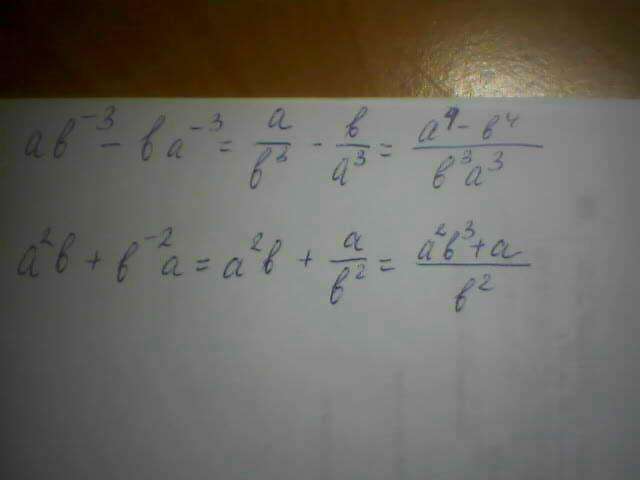 ab⁻³ - ba⁻³ = a/b³ - b/a³ = (a⁴ - b⁴)/(b³a³)
a²b + b⁻²a = a²b + a/b² = (a²b³ + a)/b²